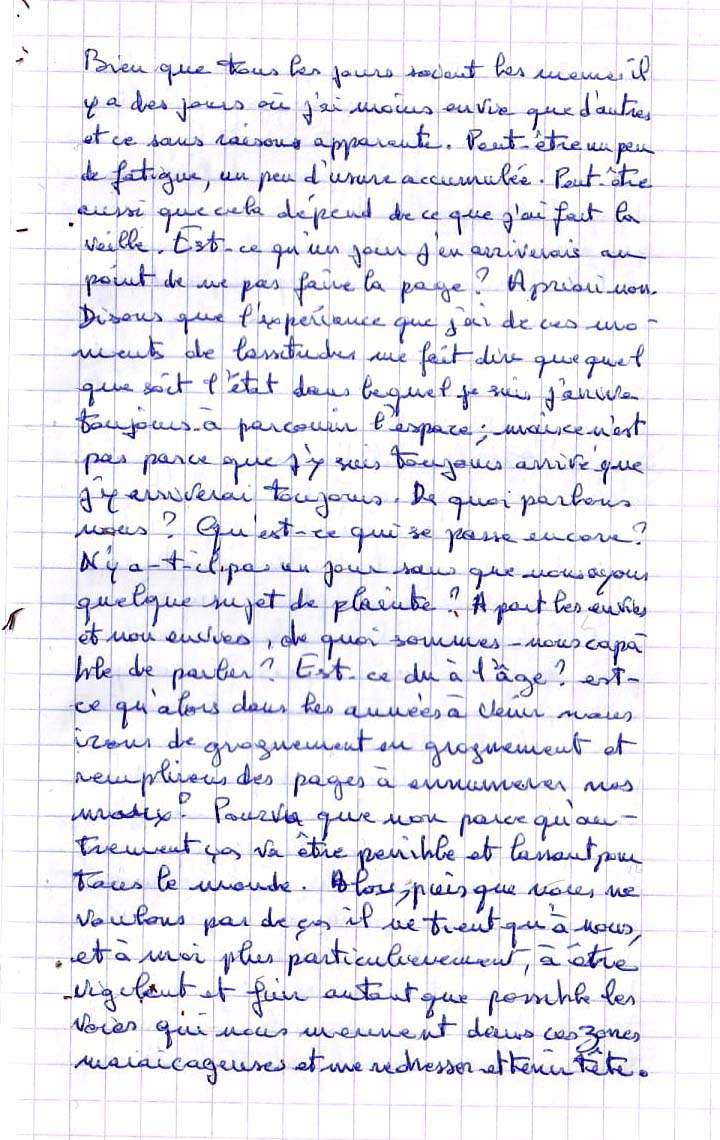 Bien que tous les jours soient les meme il
y a des jours où j'ai moins envie que d'autres
et ce sans raisons apparente. Peut-être un peu
de fatigue, un peu d'usure accumulée. Peut-être
aussi que cela dépend de ce que j'ai fait la
veille. Est-ce qu'un jour j'en arriverais au
point de ne pas faire la page? A priori non.
Disons que l'expérience que j'ai de ces mo-
ments de lassitudes me fait dire que quel
que soit l'état dans lequel je suis j'arrive
toujours à parcourir l'espace; mais ce n'est
pas parce que j'y suis toujours arrivé que
j'y arriverai toujours. De quoi parlons
nous? Qu'est-ce qui se passe encore?
N'y a-t-il pas un jour sans que nous ayons
quelque sujet de plainte? A part les envies
et non envies, de quoi sommes-nous capa
ble de parler? Est-ce du à l'âge? est-
ce qu'alors dans les années à venir nous
irons de grognement en grognement et
remplirons des pages à ennumerer nos
maux? Pourvu que non parce qu'au-
trement ça va être penible et lassant pour
tous le monde. Alors, puis que nous ne
voulons pas de ça il ne tient qu'à nous,
et à moi plus particulierement, à être
vigilent et fuir autant que possible les
voies qui nous mennent dans ces zones
maraicageuses et me redresser et tenir tête.